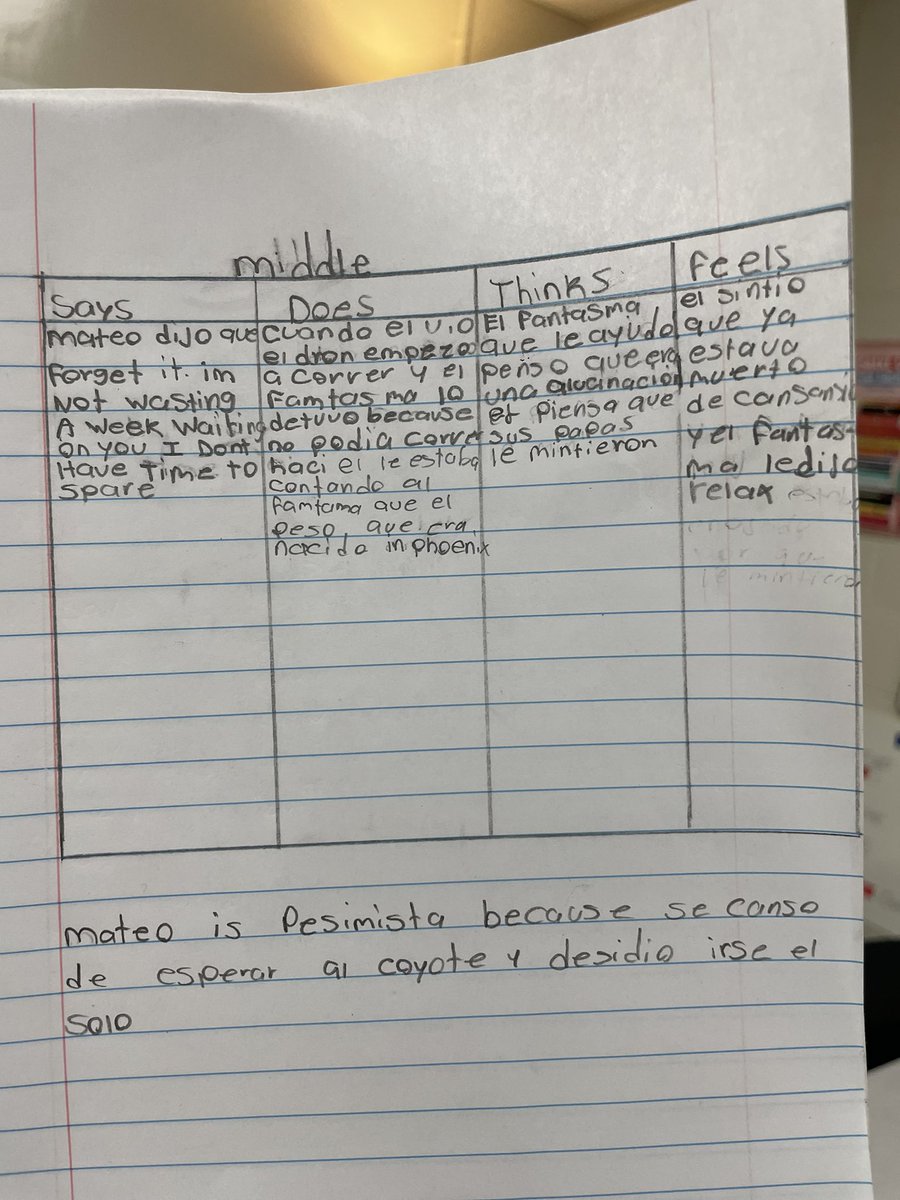 middle
Says
mateo dijo que
forget it. im
Not wasting
A week waiting
on you I Dont
Have Time to
spare
Does
Cuando el vio
el dron empezo
a correr y el
Famtasma lo
detuvo because
no podia correr
haci el le estaba
contando al
famtama que el
peso que era
nacido in phoenix
Thinks
El Fantasma
que le ayudo
penso que era
una alucinación
el piensa que
sus papas
le mintieron
Feels
el sintio
que ya
estava
muerto
de
y el fantas-
ma le dijo
relax
le mintiero
mateo is Pesimista because se canso
de esperar al coyote y desidio irse el
solo